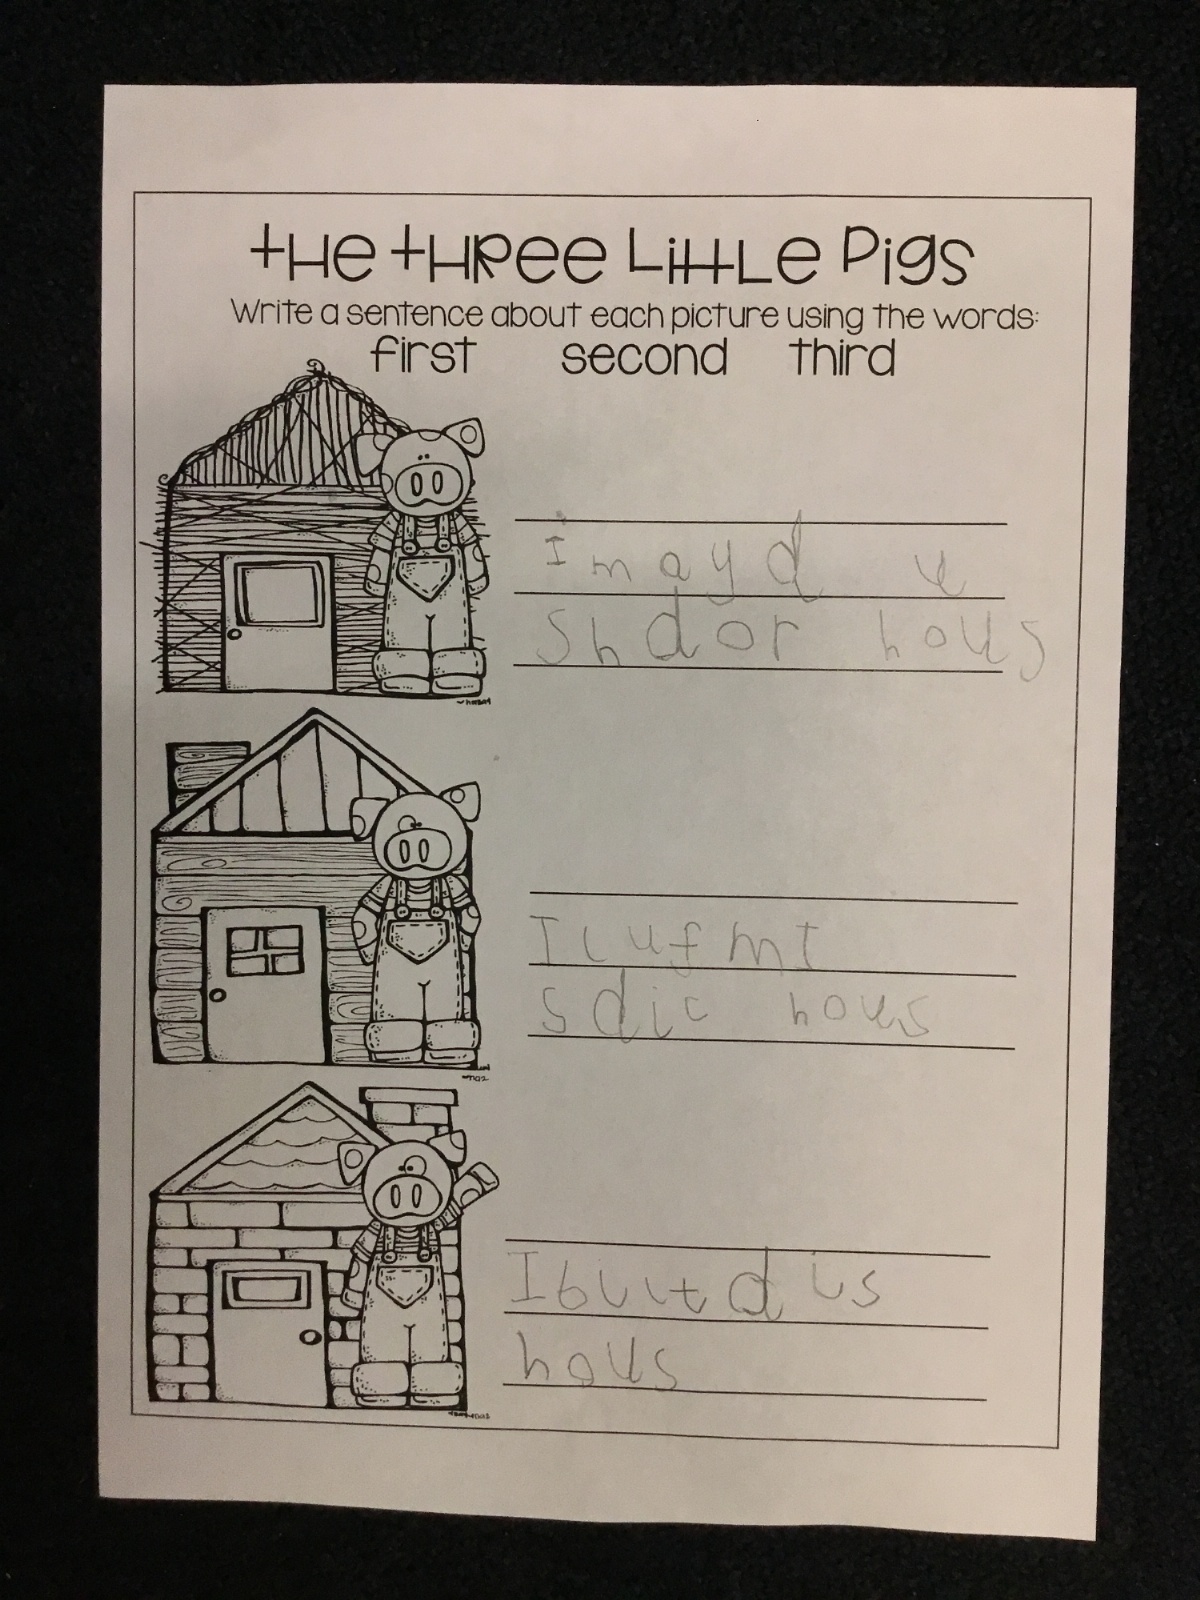 the three little pigs
Write a sentence about each picture using the words:
first second third
I mayd u
Shdor hous
I luf mI
sdic hous
I biult dis
hous